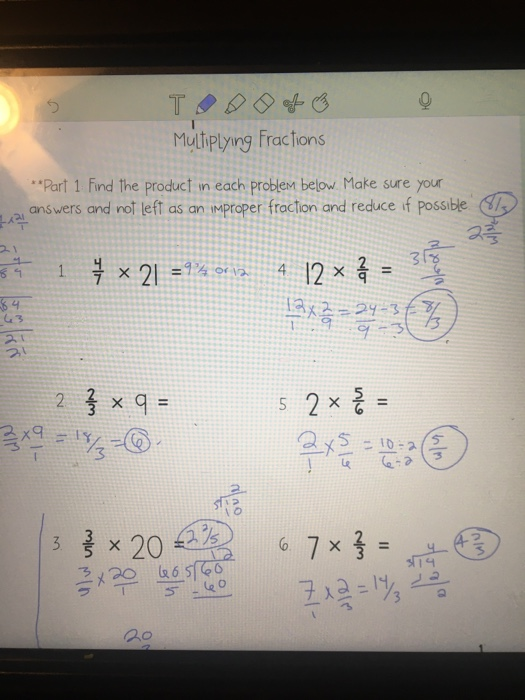 T
Multiplying Fractions
**Part 1 Find the product in each problem below Make sure your
answers and not left as an improper fraction and reduce if possible
8/3
2 2/3
1 4/7 × 21 = 9 3/7 or 12
84
63
21
21
4 12 × 2/9 =
2
3√8
6
2
12/1 × 2/9 = 24-3/9-3 = 8/3
2 2/3 × 9 =
2/3 × 9/1 = 18/3 = 6
5 2 × 5/6 =
2/1 × 5/6 = 10÷2/6÷2 5/3
2
5√12
10
3. 3/5 × 20 = 2 2/5
3/5 × 20/1 60/5
12
5√60
-60
20
6. 7 × 2/3 =
7/1 × 2/3 = 14/3
4
3√14
12
2
4 2/3